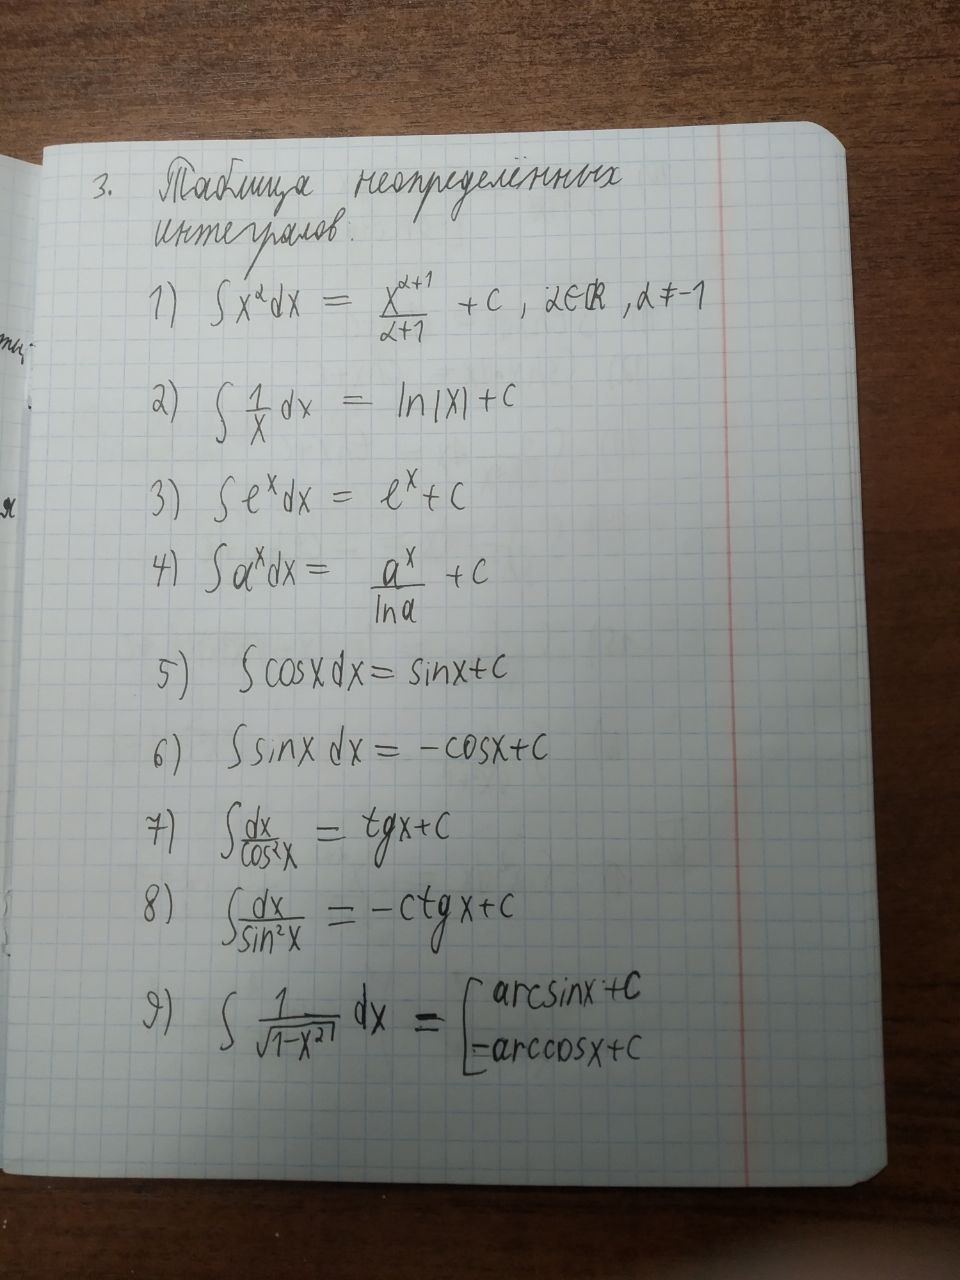 3. Таблица неопределённых
интегралов.
1) ∫x^α dx = x^(α+1)/(α+1) + C, α∈ℝ, α≠-1
2) ∫ 1/x dx = ln|x| + C
3) ∫e^x dx = e^x + C
4) ∫a^x dx = a^x/ln a + C
5) ∫cosx dx = sinx+C
6) ∫sinx dx = -cosx+C
7) ∫dx/cos²x = tgx+C
8) ∫dx/sin²x = -ctgx+C
9) ∫ 1/√(1-x²) dx = [ arcsinx+C
-arccosx+C